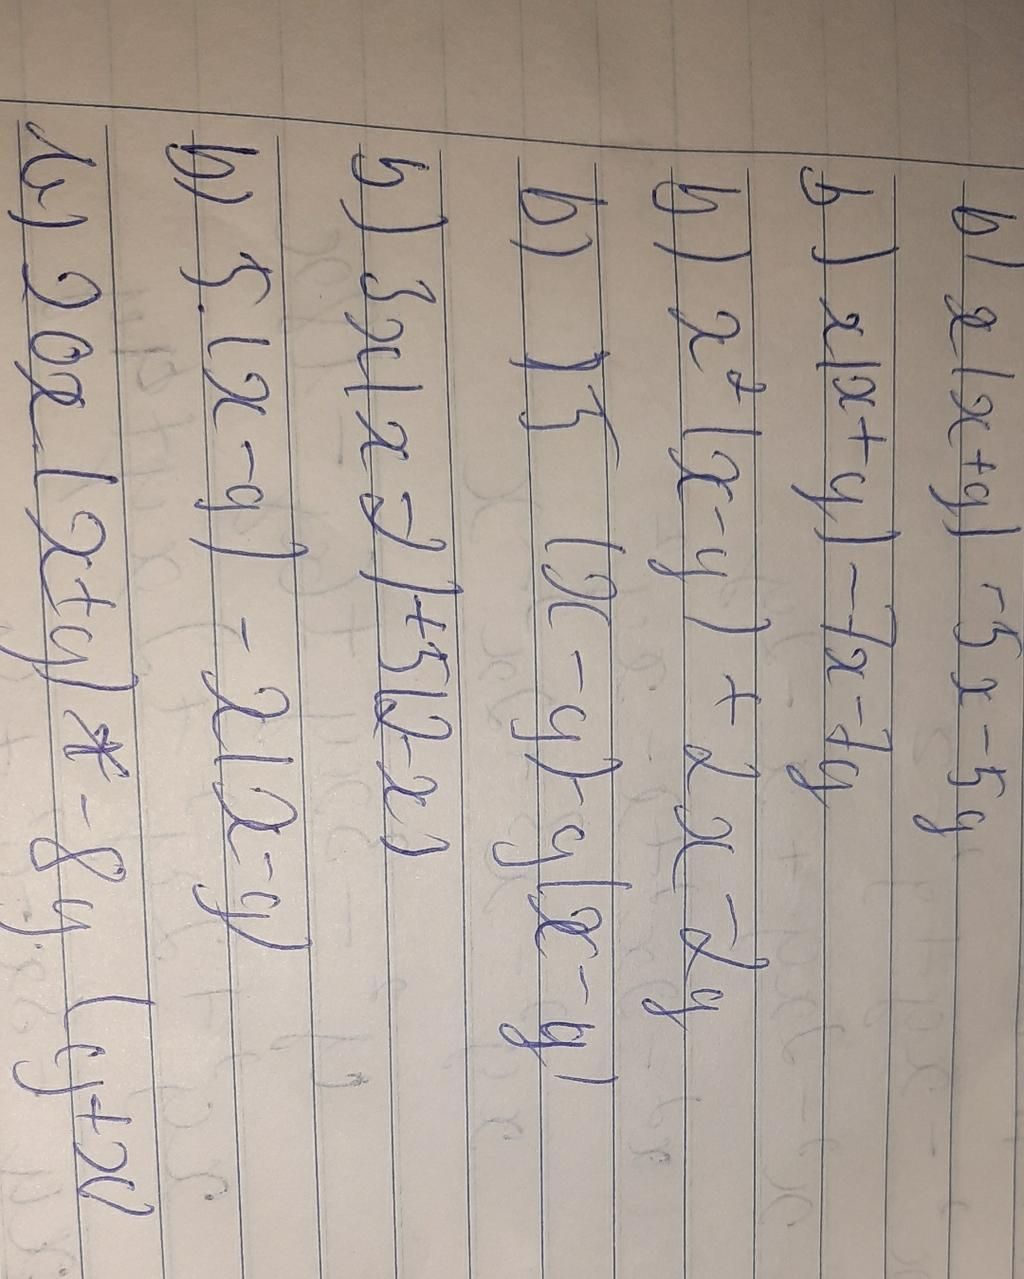 b) x(x+y) -5x-5y
b) x(x+y)-7x-7y
b) x²(x-y)+2x-2y
b) )5 (x-y)-y(x-y)
b) 3x(x-2)+5(2-x)
b) 5.(x-y) -2(x-y)
b) 20x.(x+y) * -8y (y+x)